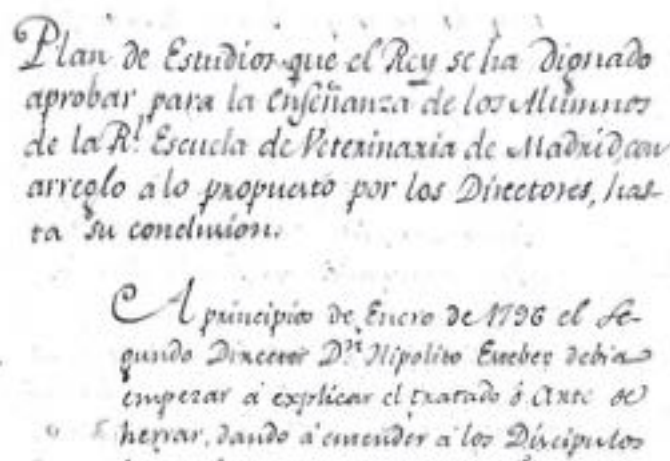 Plan de Estudios que el Rey se ha dignado
aprobar para la Enseñanza de los Alumnos
de la Rl. Escuela de Veterinaria de Madrid, con
arreglo a lo propuesto por los Directores, has-
ta su conclusion.
Al principio de Enero de 1796 el Se-
gundo Director Dn. Hipolito Estevez debia
empezar á explicar el tratado ó Arte de
herrar, dando á entender á los Discipulos